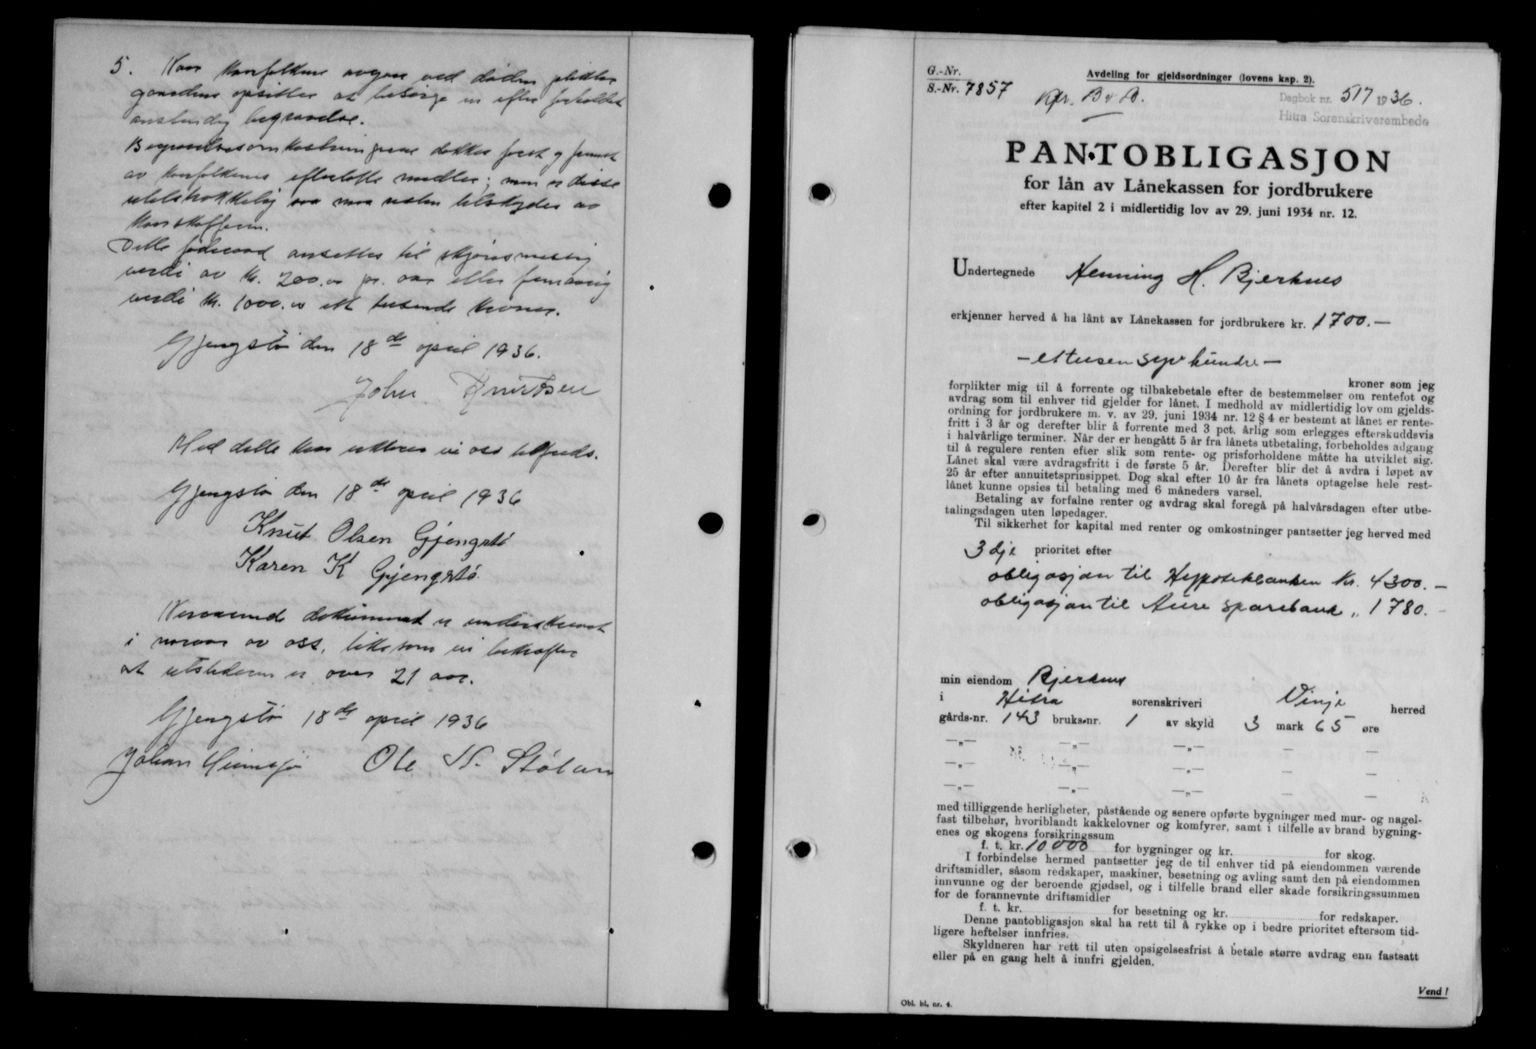 5. Naar kaarfolkene avgaar ved døden plikter
gaardens opsitter at besørge en efter forholdet
anstendig begravelse.
Begravelsesomkostningerne dekkes først og fremst
av kaarfolkenes efterlatte midler; men er disse
utilstrekkelig saa maa resten tilskydes av
Dette føderaad ansettes til skjønsmessig
verdi av kr. 200.00 pr. aar eller femaarig
verdi kr. 1000.00 ett tusende kroner.
Gjengstø den 18de april 1936.
John Knutsen
Med dette kaar erklærer vi oss tilfreds.
Gjengstø den 18de april 1936
Knut Olsen Gjengstø
Karen K Gjengstø.
Nærværende dokument er underskrevet
i nærvær av oss, likesom vi bekrefter
at utstederen er over 21 aar.
Gjengstø 18de april 1936
Johan Ole N. Stølan
G.-Nr.
S.-Nr. 7857
Avdeling for gjeldsordninger (lovens kap. 2).
Kpr. B & B.
Dagbok nr. 517 1936.
Hitra Sorenskriverembede
PANTOBLIGASJON
for lån av Lånekassen for jordbrukere
efter kapitel 2 i midlertidig lov av 29. juni 1934 nr. 12.
Undertegnede Henning H. Bjerknes
erkjenner herved å ha lånt av Lånekassen for jordbrukere kr. 1700.—
— ettusensyvhundre —
kroner som jeg
forplikter mig til å forrente og tilbakebetale efter de bestemmelser om rentefot og
avdrag som til enhver tid gjelder for lånet. I medhold av midlertidig lov om gjelds-
ordning for jordbrukere m. v. av 29. juni 1934 nr. 12 § 4 er bestemt at lånet er rente-
fritt i 3 år og derefter blir å forrente med 3 pct. årlig som erlegges efterskuddsvis
i halvårlige terminer. Når der er hengått 5 år fra lånets utbetaling, forbeholdes adgang
til å regulere renten efter slik som rente- og prisforholdene måtte ha utviklet sig.
Lånet skal være avdragsfritt i de første 5 år. Derefter blir det å avdra i løpet av
25 år efter annuitetsprinsippet. Dog skal efter 10 år fra lånets optagelse hele rest-
lånet kunne opsies til betaling med 6 måneders varsel.
Betaling av forfalne renter og avdrag skal foregå på halvårsdagen efter utbe-
talingsdagen uten løpedager.
Til sikkerhet for kapital med renter og omkostninger pantsetter jeg herved med
3dje prioritet efter
obligasjon til Hypotekbanken Kr. 4300.—
obligasjon til Aure sparebank „ 1780.—
min eiendom Bjerknes
i Hitra sorenskriveri Vinje herred
gårds-nr. 143 bruks-nr. 1 av skyld 3 mark 65 øre
— „ — — „ — — „ — — —
— „ — — „ — — „ — — —
— „ — — „ — — „ — — —
med tilliggende herligheter, påstående og senere opførte bygninger med mur- og nagel-
fast tilbehør, hvoriblandt kakkelovner og komfyrer, samt i tilfelle av brand bygning-
enes og skogens forsikringssum
f. t. kr. 10000 for bygninger og kr. for skog.
I forbindelse hermed pantsetter jeg de til enhver tid på eiendommen værende
driftsmidler, såsom redskaper, maskiner, besetning og avling samt den på eiendommen
innvunne og der beroende gjødsel, og i tilfelle brand eller skade forsikringssummen
for de forannevnte driftsmidler
f. t. kr. for besetning og kr. for redskaper.
Denne pantobligasjon skal ha rett til å rykke op i bedre prioritet eftersom tid-
ligere heftelser innfries.
Skyldneren har rett til uten opsigelsesfrist å betale større avdrag enn fastsatt
eller på en gang helt å innfri gjelden.
Vend !
Obl. bl. nr. 4.